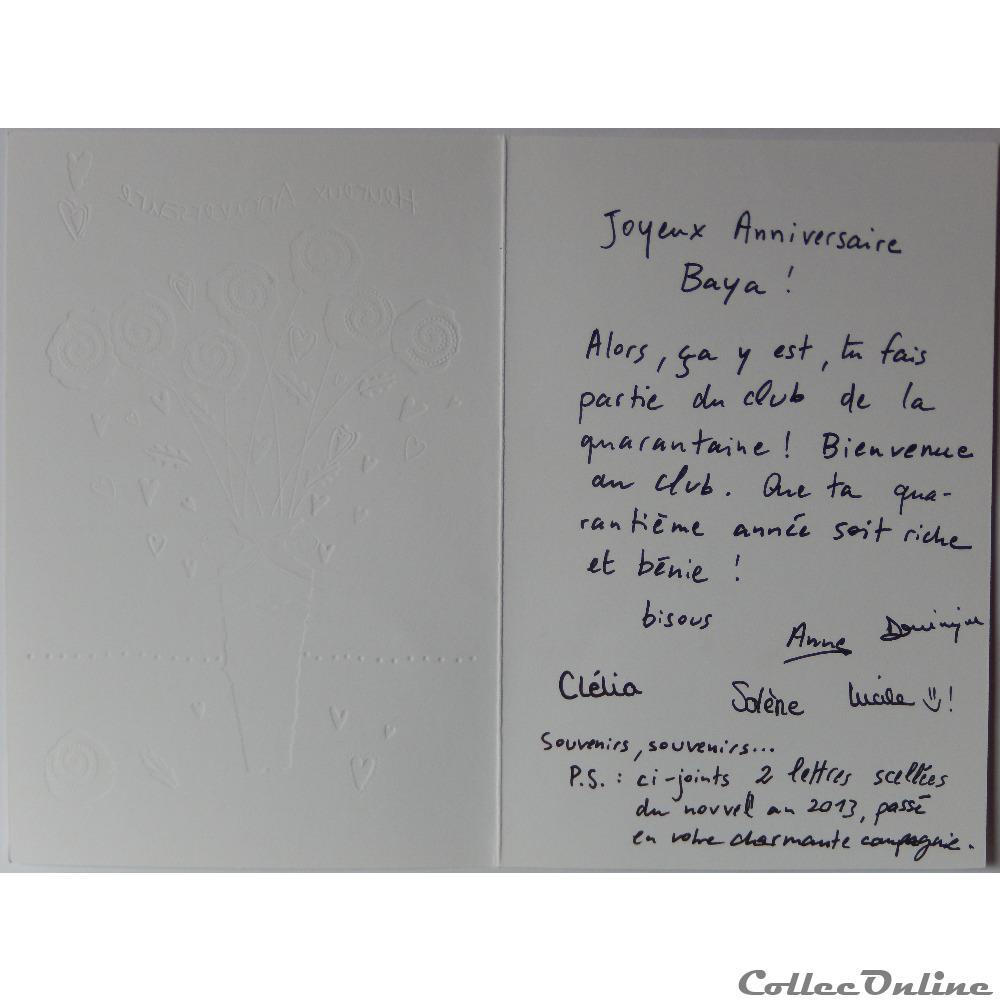 Heureux Anniversaire
Joyeux Anniversaire
Baya !
Alors, ça y est, tu fais
partie du club de la
quarantaine ! Bienvenue
au club. Que ta qua-
rantième année soit riche
et bénie !
bisous
Anne Dominique
Clélia Solène Lucile !
Souvenirs, souvenirs...
P.S. : ci-joints 2 lettres scellées
du nouvel an 2013, passé
en votre charmante compagnie.
CollecOnline